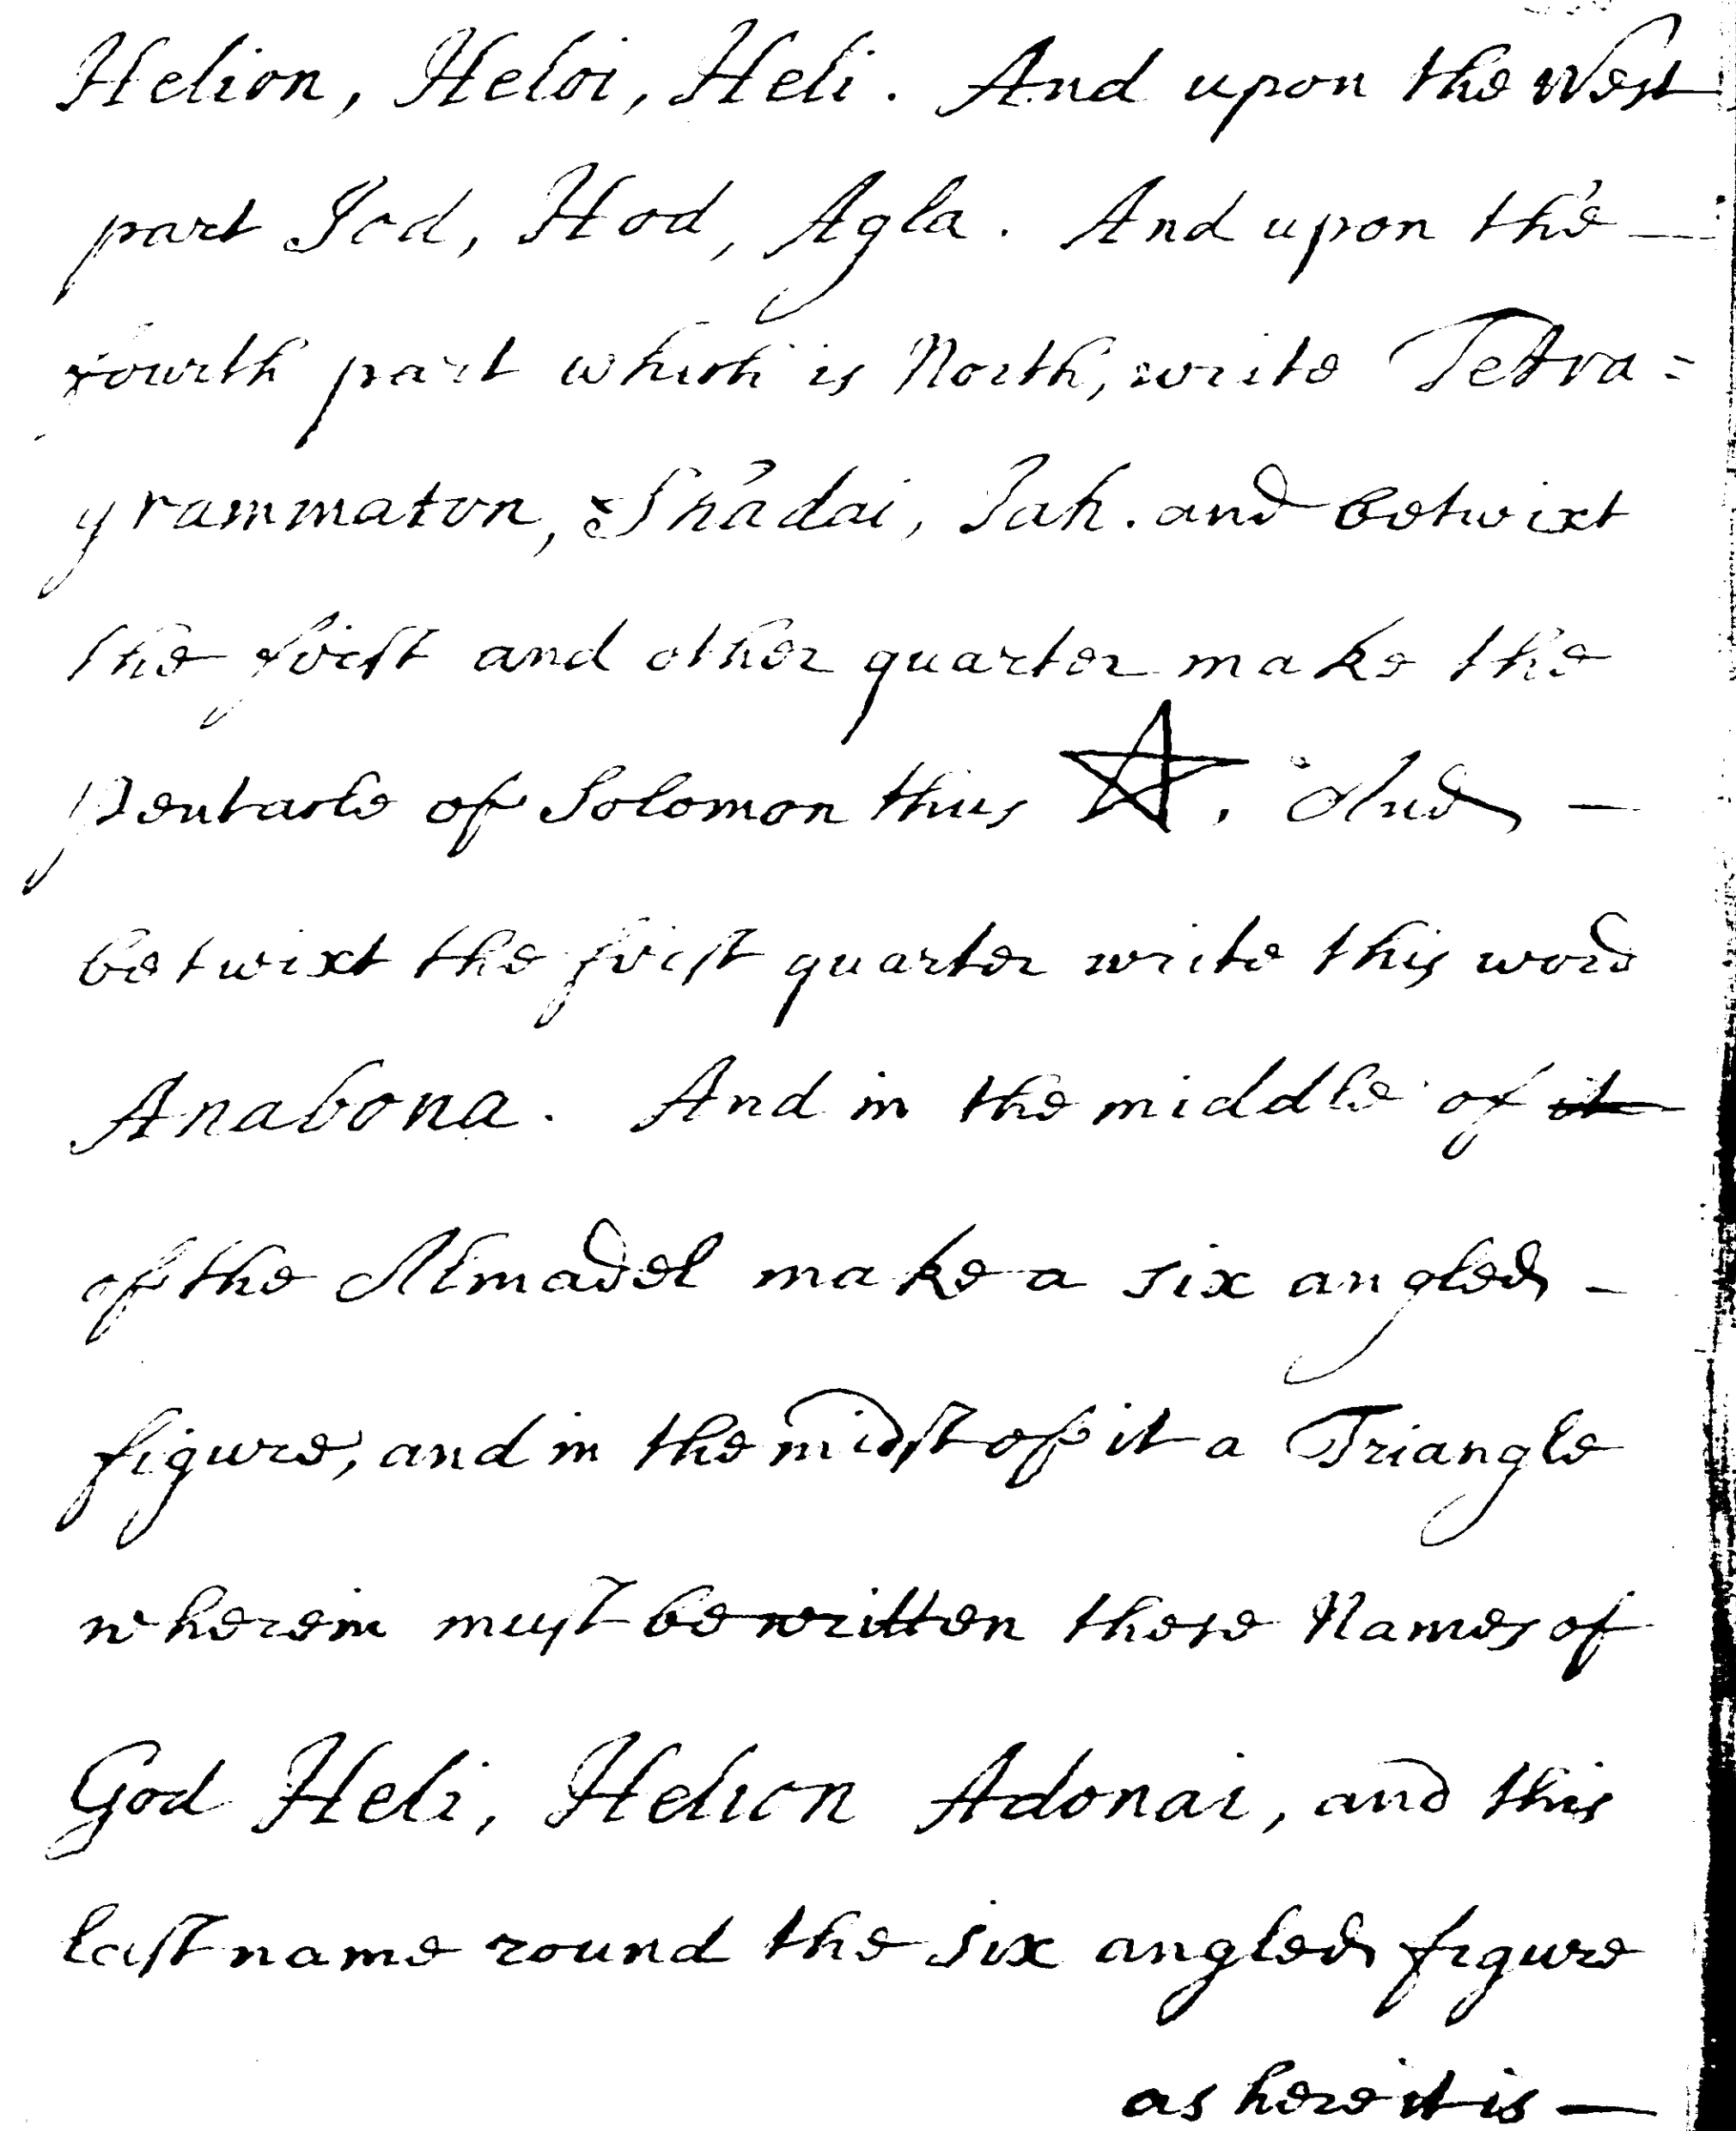 Helion, Heloi, Heli. And upon the West
part Jod, Hod, Agla. And upon the —
fourth part which is North, write Tetra=
grammaton, Shadai, Jah. and betwixt
the first and other quarter make the
Pentacle of Solomon thus ⛤, And —
betwixt the first quarter write this word
Anabona. And in the middle of it
of the Almadel make a six angled —
figure, and in the midst of it a Triangle
wherein must be written these Names of
God Heli, Helion Adonai, and this
last name round the six angled figure
as here it is —